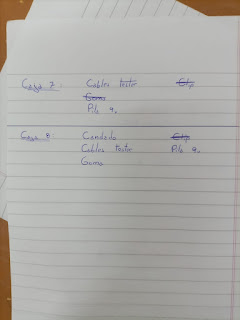 Caja 7: Cables tester Clip
Goma
Pila 9v
Caja 8: Candado Clip
Cables Tester Pila 9v
Goma